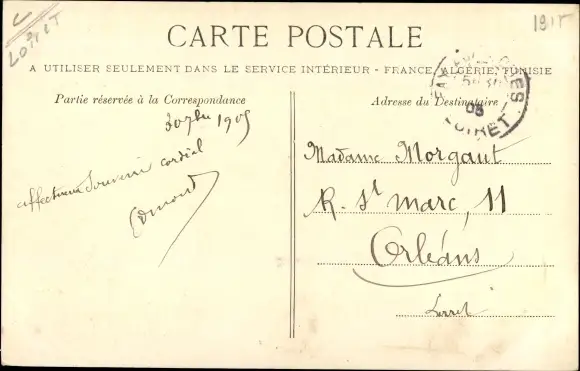 Loiret
1915
CARTE POSTALE
A UTILISER SEULEMENT DANS LE SERVICE INTÉRIEUR - FRANCE, ALGÉRIE, TUNISIE
Partie réservée à la Correspondance
30 7bre 1905
affectueux Souvenir cordial
Edmond
Adresse du Destinataire
FAY
GES
05
LOIRET
Madame Morgaut
R. St marc, 11
Orléans
Loiret